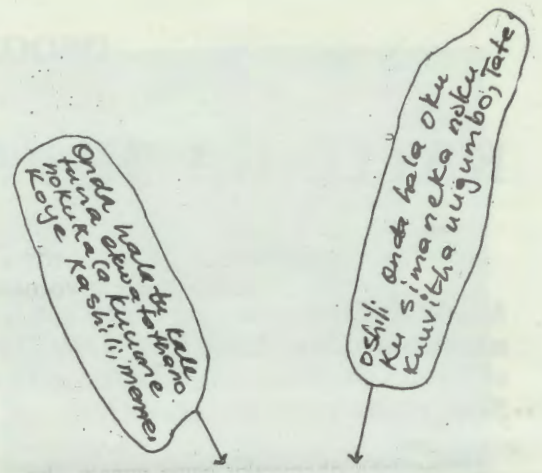 Onda hala tu kale
tuna ekwatathano
nokukala kuume
Koye Kashili, meme,
Oshili onda hala oku
ku simaneka noku
kuuvitha uugumbo, Tate